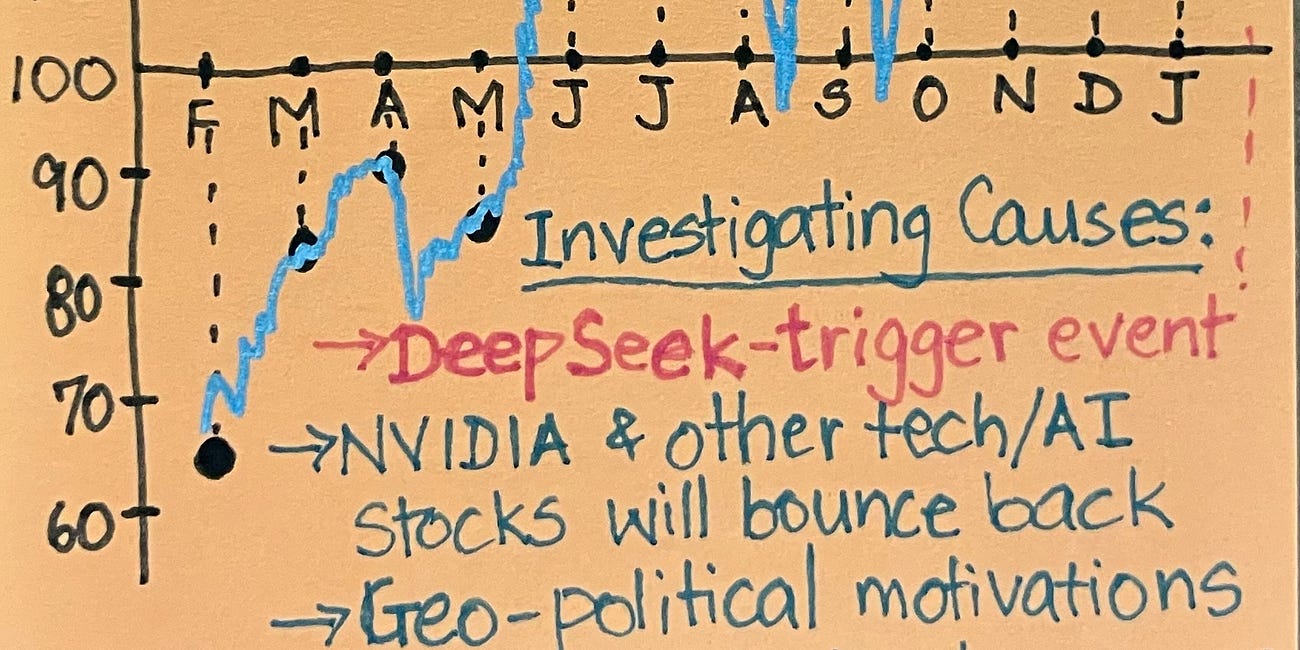 100
F M A M J J A S O N D J
90
Investigating Causes:
80
→DeepSeek-trigger event
70
→NVIDIA & other tech/AI
stocks will bounce back
60
→Geo-political motivations